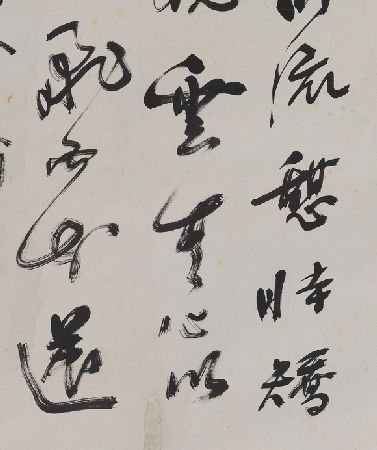 流憩時矯
雲無心以
飛而知還